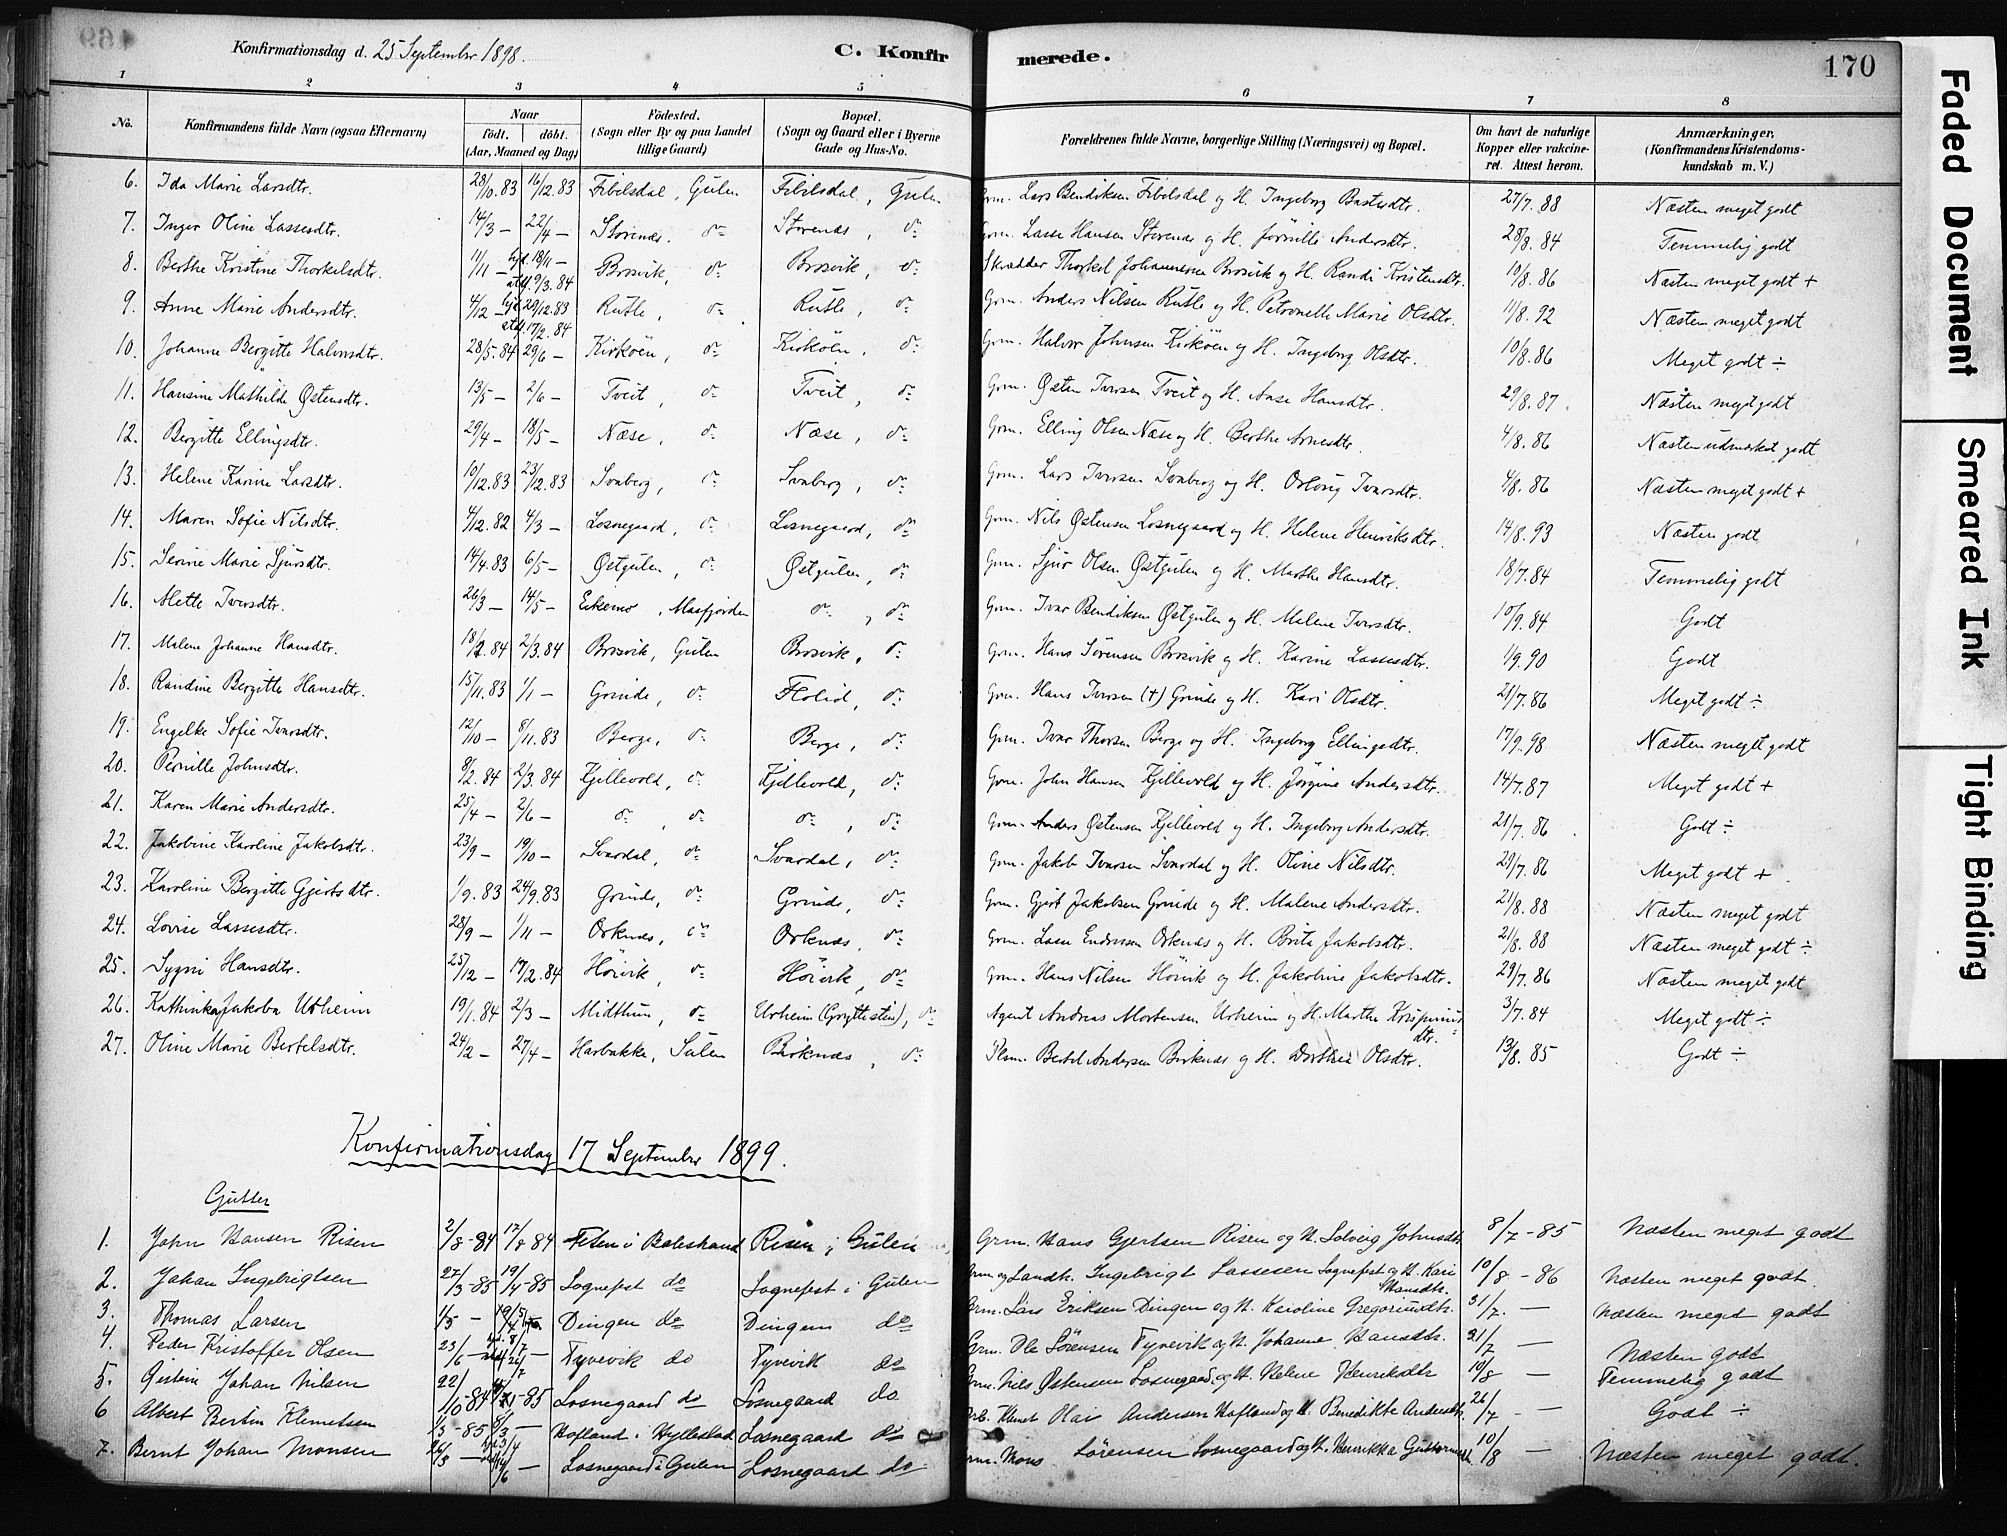 Konfirmationsdag d. 25 September 1898. C. Konfirmerede. 170
1 2 3 4 5 6 7 8
No. Konfirmandens fulde Navn (ogsaa Efternavn) Naar født. døbt. (Aar, Maaned og Dag) Födested. (Sogn eller By og paa Landet tillige Gaard) Bopæl. (Sogn og Gaard eller i Byerne Gade og Hus-No. Forældrenes fulde Navne, borgerlige Stilling (Næringsvei) og Bopæl. Om havt de naturlige Kopper eller vakcineret. Attest herom. Anmærkninger. (Konfirmandens Kristendomskundskab m. V.)
6. Ida Marie Larsdtr. 28/10.83 16/12.83 Fibelsdal, Gulen Fibelsdal, Gulen Grm. Lars Bendiksen Fibelsdal og H. Ingeborg 27/7.88 Næsten meget godt
7. Inger Oline Lassesdtr. 14/3 – 22/4 – Storenæs, do Storenæs, do Grm. Lasse Hansen Storenæs og H. Andersdtr. 28/8.84 Temmelig godt
8. Berthe Kristine Thorkelsdtr. 11/11 – hjd. 18/11 – 9/3.84 Brosvik, do Brosvik, do Skrædder Thorkel Johannesen Brosvik og H. Randi Kristensdtr. 10/8.86 Næsten meget godt +
9. Anne Marie Andersdtr. 4/12 – hjd. 29/12.83 17/2.84 Rutle, do Rutle, do Grm. Anders Nilsen Rutle og H. Petronelle Marie Olsdtr. 11/8.92 Næsten meget godt
10. Johanne Bergitte Halvorsdtr. 28/5.84 29/6 – Kirköen, do Kirköen, do Grm. Halvor Johnsen Kirköen og H. Ingeborg Olsdtr. 10/8.86 Meget godt ÷
11. Hansine Mathilde Østensdtr. 13/5 – 2/6 – Tveit, do Tveit, do Grm. Østen Iversen Tveit og H. Anse Hansdtr. 29/8.87 Næsten meget godt
12. Bergitte Ellingsdtr. 29/4 – 18/5 – Næse, do Næse, do Grm. Elling Olsen Næse og H. Berthe Arnesdtr. 4/8.86 Næsten udmærket godt
13. Helene Karine Larsdtr. 10/12.83 23/12.83 Svaberg, do Svaberg, do Grm. Lars Iversen Svaberg og H. Ivarsdtr. 4/8.86 Næsten meget godt +
14. Maren Sofie Nilsdtr. 4/12.82 4/3 – Losnegaard, do Losnegaard, do Grm. Nils Østensen Losnegaard og H. Helene Henriksdtr. 14/8.93 Næsten godt
15. Serine Marie Sjursdtr. 14/4.83 6/5 – Østgulen, do Østgulen, do Grm. Sjur Olsen Østgulen og H. Marthe Hansdtr. 18/7.84 Temmelig godt
16. Mette Iversdtr. 26/3 – 14/5 – Eikemo, Masfjorden do, do Grm. Ivar Bendiksen Østgulen og H. Malene Iversdtr. 10/9.84 Godt
17. Malene Johanne Hansdtr. 18/2.84 2/3.84 Brosvik, Gulen Brosvik, do Grm. Hans Sørensen Brosvik og H. Karine Lassesdtr. 1/9.90 Godt
18. Randine Bergitte Hansdtr. 15/11.83 1/1 – Grinde, do Flolid, do Grm. Hans Iversen (+) Grinde og H. Kari Olsdtr. 21/7.86 Meget godt ÷
19. Engelke Sofie Ivarsdtr. 12/10 – 8/11.83 Berge, do Berge, do Grm. Ivar Thorsen Berge og H. Ingeborg Ellingsdtr. 17/9.98 Næsten meget godt
20. Pernille Johnsdtr. 8/2.84 2/3.84 Kjillevold, do Kjillevold, do Grm. John Hansen Kjillevold og H. Jørgine Andersdtr. 14/7.87 Meget godt +
21. Karen Marie Andersdtr. 25/4 – 2/6 – do, do do, do Grm. Anders Østensen Kjillevold og H. Ingeborg Andersdtr. 21/7.86 Godt ÷
22. Jakobine Karoline Jakobsdtr. 23/9 – 19/10 – Svardal, do Svardal, do Grm. Jakob Ivarsen Svardal og H. Oline Nilsdtr. 29/7.86 Meget godt +
23. Karoline Bergitte Gjertsdtr. 1/9.83 24/9.83 Grinde, do Grinde, do Grm. Gjert Jakobsen Grinde og H. Malene Andersdtr. 21/8.88 Næsten meget godt
24. Lovise Lassesdtr. 28/9 – 1/11 – Orknæs, do Orknæs, do Grm. Lasse Endresen Orknæs og H. Brita Jakobsdtr. 21/8.88 Næsten meget godt ÷
25. Sygni Hansdtr. 25/12 – 17/2.84 Höivik, do Höivik, do Grm. Hans Nilsen Höivik og H. Jakobine Jakobsdtr. 29/7.86 Næsten meget godt
26. Kathinka Jakoba Urheim 19/1.84 2/3 – Midthun, do Urheim (Gryttesten), do Agent Andreas Mortensen Urheim og H. Marthe Krispinusdtr. 3/7.84 Meget godt ÷
27. Oline Marie Bertelsdtr. 24/2 – 27/4 – Harbakke, Sulen Birknæs, do Plsm. Bertel Andersen Birknæs og H. Dorthea Olsdtr. 13/8.85 Godt ÷
Konfirmationsdag 17 September 1899.
Gutter
1. John Hansen Risen 2/8-84 17/8 84 i Balestrand Risen i Gulen Grm. Hans Gjertsen Risen og H. Solveig Johnsdtr. 8/7-85 Næsten meget godt
2. Johan Ingebrigtsen 27/3-85 19/4-85 Sognefest do Sognefest i Gulen Grm og Landh. Ingebrigt Lassesen Sognefest og H. Kari Hansdtr. 10/8-86 Næsten meget godt
3. Thomas Larsen 1/5 – Dingen do Dingen do Grm. Lars Eriksen Dingen og H. Karoline Gregoriusdtr. 31/7. – Næsten meget godt
4. Peder Kristoffer Olsen 23/6 – Tyvevik do Tyvevik do Grm. Ole Sörensen Tyvevik og H. Johanne Hansdtr. 31/7 – Næsten godt
5. Johan Nilsen 22/10-84 85 Losnegaard do Losnegaard do Grm. Nils Østensen Losnegaard og H. Helene Henriksdtr 10/8 – Temmelig godt
6 Albert Bertin Klemetsen 1/3-85 8/3 – Hofland i Hyllestad Losnegaard do Klemet Olai Andersen Hofland og H. Benedikte Andersdtr. 26/7 – Godt ÷
7. Bernt Johan Monsen 26/3 – Losnegaard i Gulen Losnegaard do Grm. Mons Sörensen Losnegaard og H. Henrikka 10/8 – Næsten meget godt.
Faded Document
Smeared Ink
Tight Binding